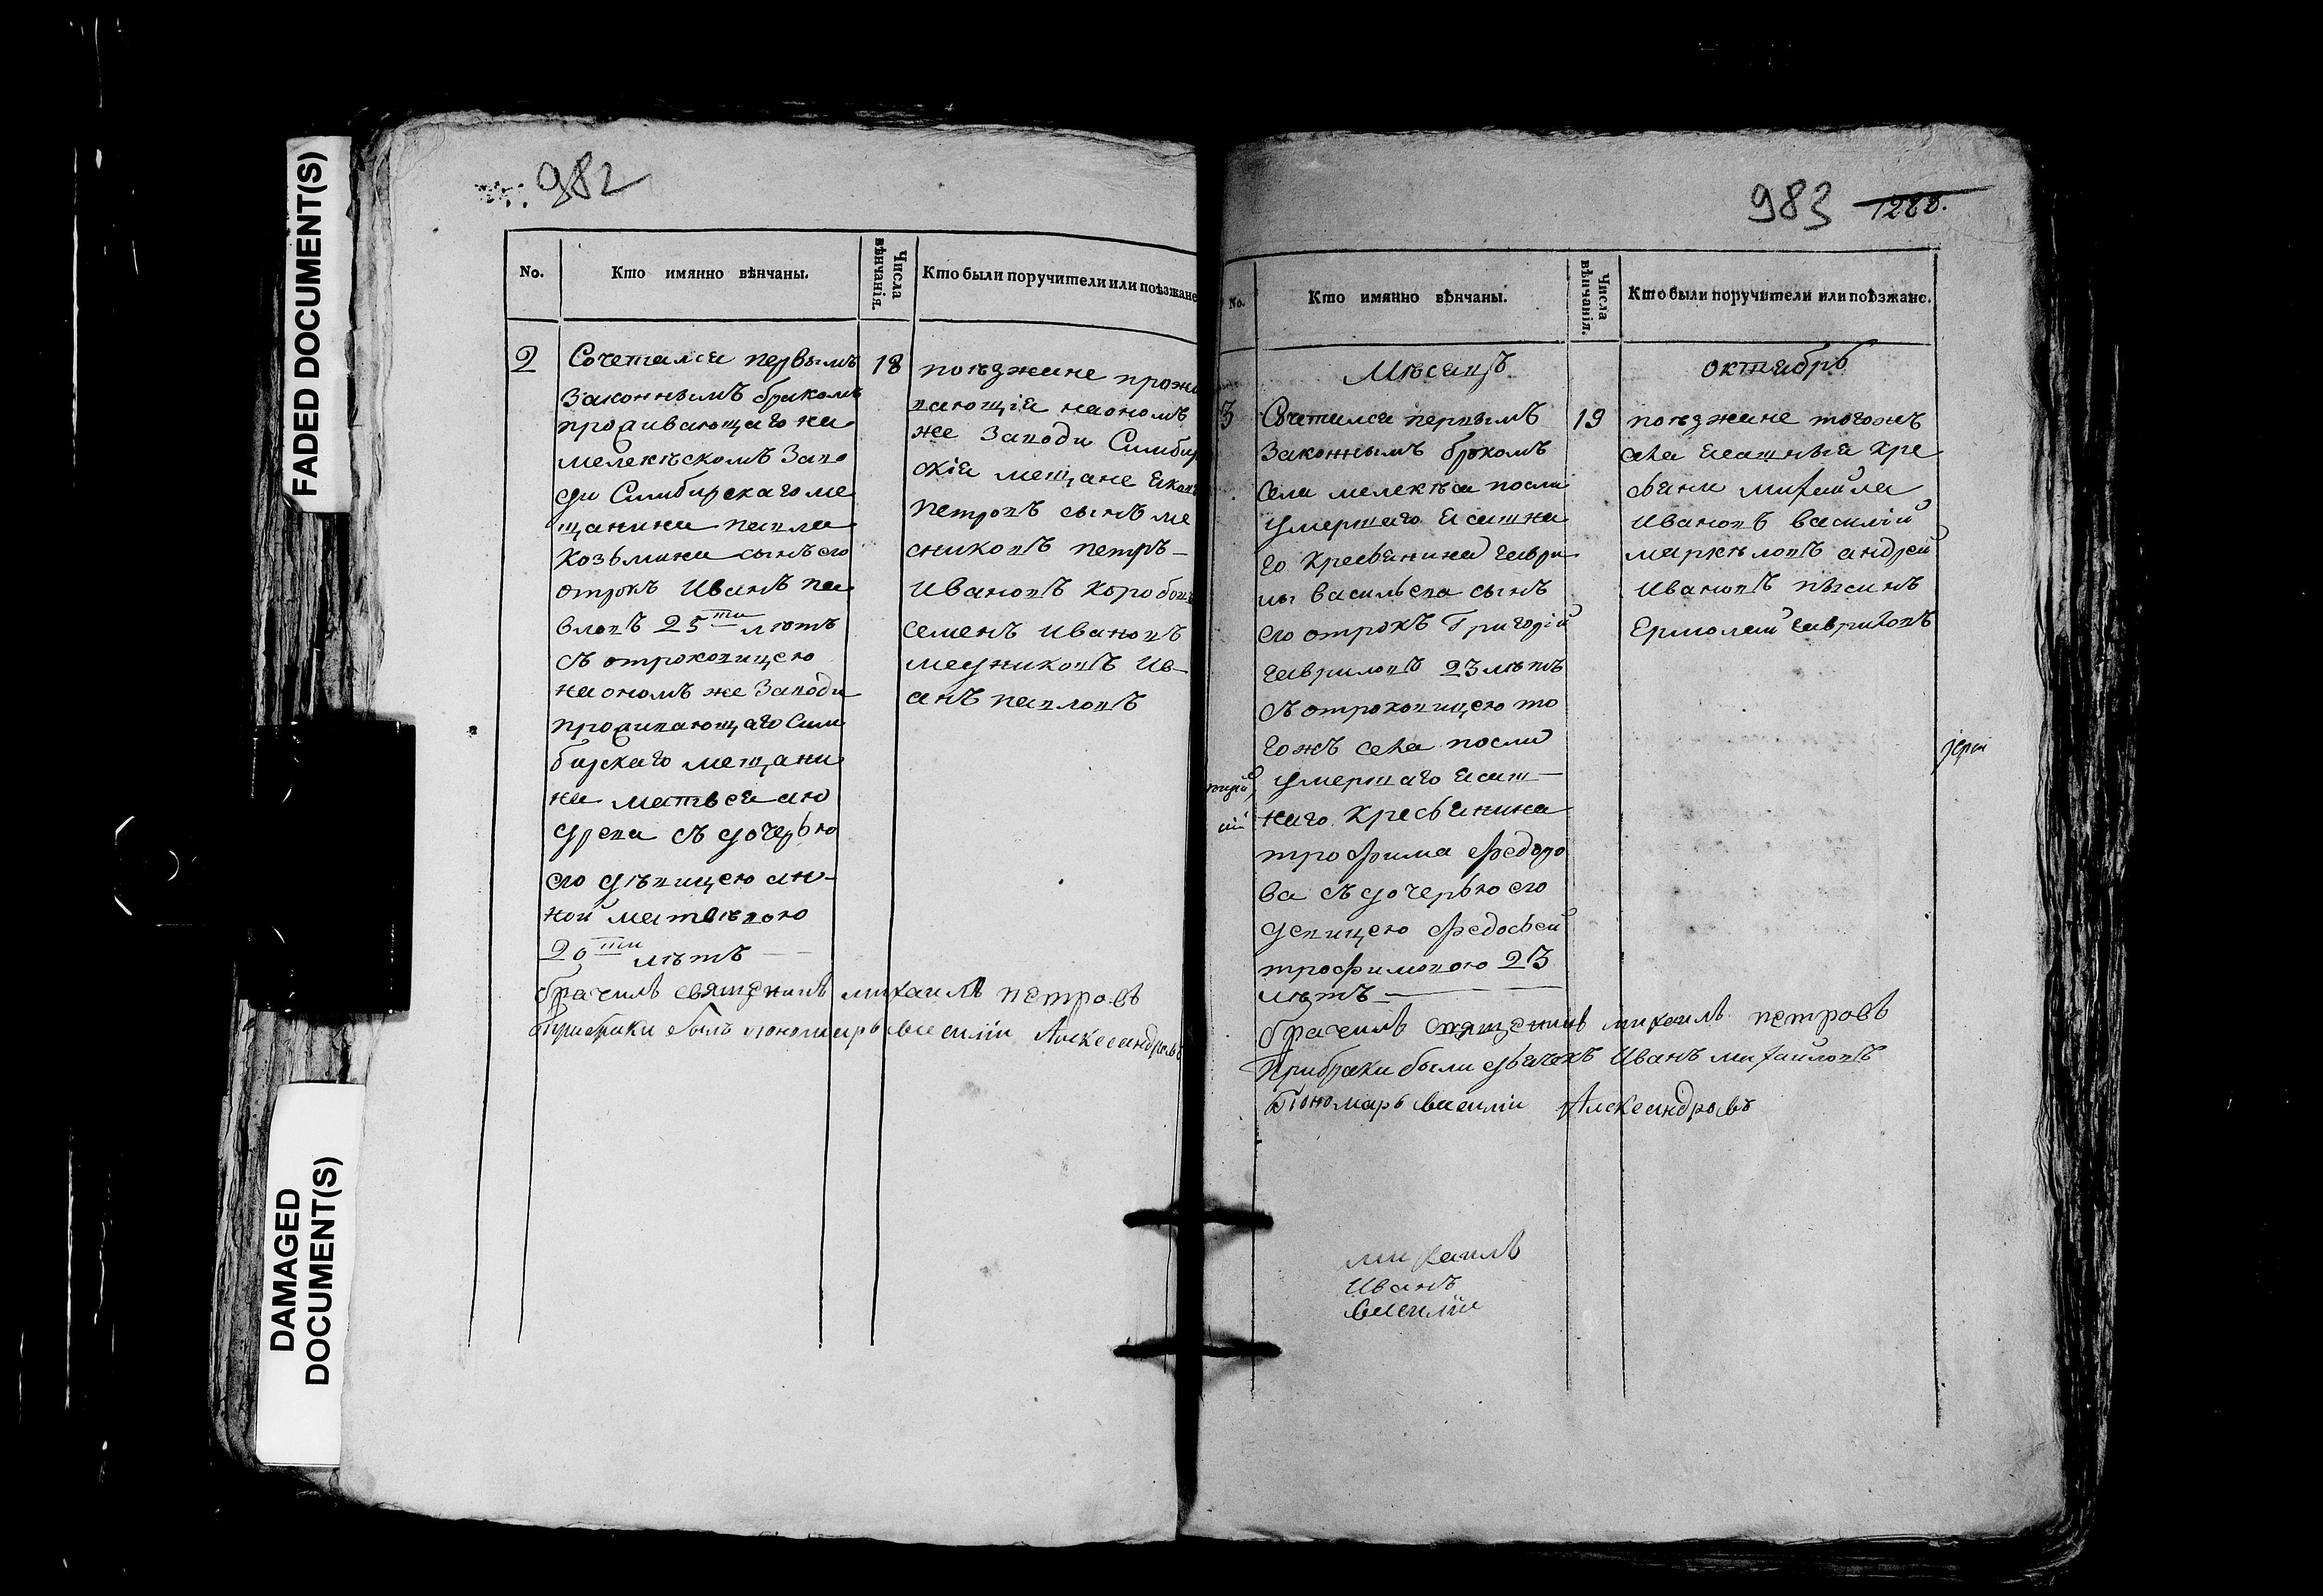 FADED DOCUMENT(S)
DAMAGED
DOCUMENT(S)
982
No.
Кто имянно вѣнчаны.
Числа
вѣнчанія.
Кто были поручители или поѣзжане
2
Сочетался первымъ
законнымъ бракомъ
проживающаго на
мелекѣскомъ заво
ди Симбирскаго ме
щанина павла
Козьмина сынъ его
отрокъ Иванъ па
вловъ 25 ти лѣтъ
съ отроковицею
на ономъ же заводи
проживающаго Сим
бирскаго мещани
на матвея
съ дочерью
его дѣвицею ан-
ной матвѣвою
20 ти лѣтъ
18
поѣзжане прожи
вающія на ономъ
же заводи Симбир
скія мещане Яковъ
петровъ сынъ ме
сниковъ петръ
Ивановъ Коробовъ
семенъ Ивановъ
медниковъ Ив-
анъ павловъ
брачилъ священникъ михаилъ петровъ
При браки былъ пономарь василіи Александровъ
983 1280.
No.
Кто имянно вѣнчаны.
Числа
вѣнчанія.
Кто были поручители или поѣзжане.
Мѣсяцъ октябрь
3
Сочетался первымъ
законнымъ бракомъ
села мелекѣса посли
умершаго ясашна
го кресьянина гаври
лы васильева сынъ
его отрокъ Григорій
гавриловъ 23 лѣтъ
съ отроковицею то
гожъ села посли
умершаго ясаш-
наго кресьянина
трофима федоро
ва съ дочерью его
девицею федосьей
трофимовою 23
лѣтъ
19
поѣзжане тогожъ
села ясашныя кре
сьяни михаила
Ивановъ василій
маркѣловъ андрей
Ивановъ
Ермолай гавриловъ
брачилъ священникъ михаилъ петровъ
При браки были дьячекъ Иванъ михаиловъ
Пономарь василіи Александровъ
михаилъ
Иванъ
василіи